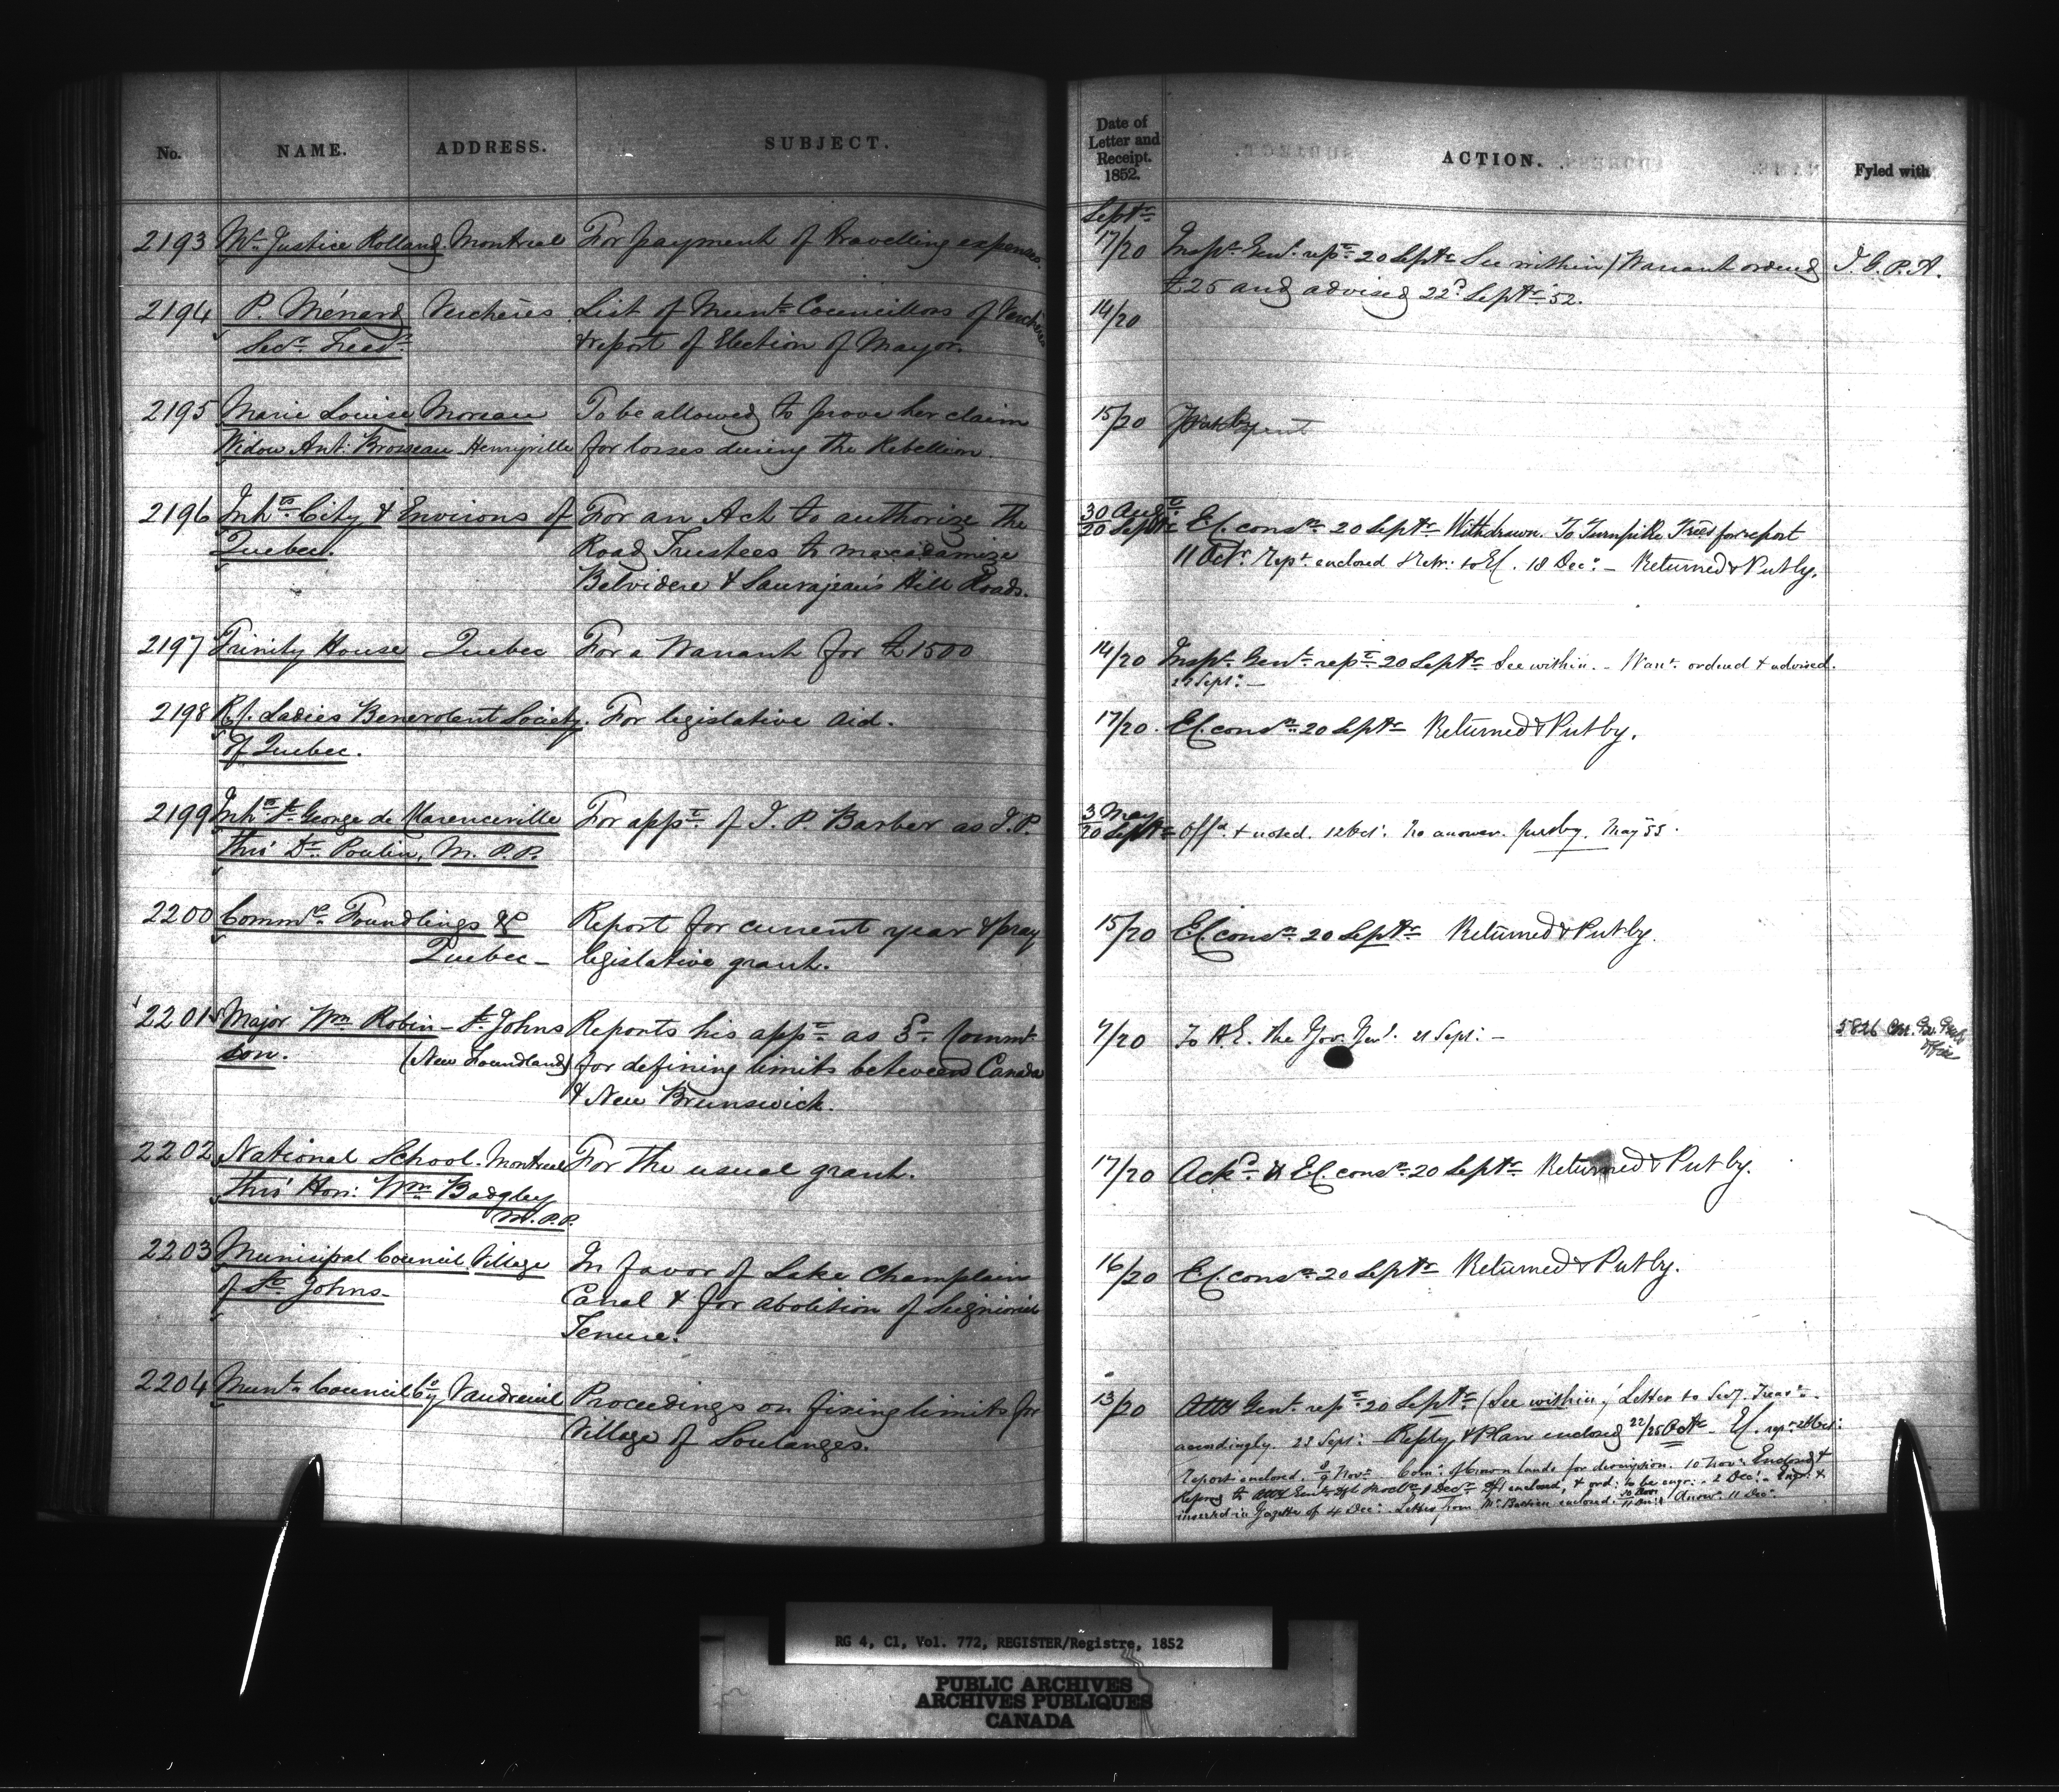 No. NAME. ADDRESS. SUBJECT.
2193 Mr. Justice Rolland Montreal For payment of travelling expenses.
2194 P. Ménard Verchères List of Munl. Councillors of Verchères
Secy. Treasr. & report of Election of Mayor.
2195 Marie Louise Moreau To be allowed to prove her claim
Widow Ant: Brosseau Henryville for losses during the Rebellion.
2196 Inhts. City & Environs of For an Act to authorize the
Quebec. Road Trustees to macadamize
Belvidere & Sauvajeau's Hill Roads.
2197 Trinity House Quebec For a Warrant for £1500
2198 R.C. Ladies Benevolent Society For legislative aid.
of Quebec.
2199 Inhts. St. George de Clarenceville For appt. of J. P. Barber as J.P.
thro' Dr. Poulin, M.P.P.
2200 Commrs. Foundlings &c Report for current year & pray
Quebec - legislative grant.
2201 Major Wm Robin- St. Johns Reports his appt. as 3d. Commr.
son. (New Foundland) for defining limits between Canada
& New Brunswick.
2202 National School. Montreal For the usual grant.
thro' Hon: Wm Badgley
M.P.P.
2203 Municipal Council Village In favor of Lake Champlain
of St. Johns - Canal & for abolition of Seigniorial
Tenure.
2204 Munl. Council Coy Vaudreuil Proceedings on fixing limits for
Village of Soulanges.
Date of
Letter and
Receipt.
1852.
ACTION. Fyled with
Septr.
17/20 Inspr. Genl. rept. 20 Septr. See within / Warrant ordered J.G.P.A.
£25 and advised 22d. Septr. 52.
14/20
15/20
30 Augt.
20 Septr. E.C. consn. 20 Septr. Withdrawn. To Turnpike Trees for report
11 Octr. Rept. enclosed & Retr: to E.C. 18 Dec: - Returned & Put by.
14/20 Inspr. Genl. rept. 20 Septr. See within. - Warrt. ordered & advised.
Sept: -
17/20. E.C. consn. 20 Septr. Returned & Put by.
3 May
20 Septr. Offd. & noted. 12 Oct: No answer. put by. May 55.
15/20 E.C. consn. 20 Septr. Returned & Put by.
9/20 To H.E. the Gov. Genl. 21 Sept: -
17/20 Ackd. & E.C. consn. 20 Septr. Returned & Put by.
16/20 E.C. consn. 20 Septr. Returned & Put by.
13/20 Atty Genl. rept. 20 Septr. (See within) Letter to Secy. Treasr.
accordingly. 23 Sept: - Reply & Plan enclosed 22/25 Octr. - E.C.
Report enclosed. 8/9 Novr. Com: of Crown lands for description. 10 Nov: Enclosed &
enclosed, & ord: to be engr: - 2 Dec: - Engr: &
inserted in Gazette of 4 Dec: Letter from enclosed. Answd. 11 Dec:
RG 4, C1, Vol. 772, REGISTER/Registre, 1852
PUBLIC ARCHIVES
ARCHIVES PUBLIQUES
CANADA